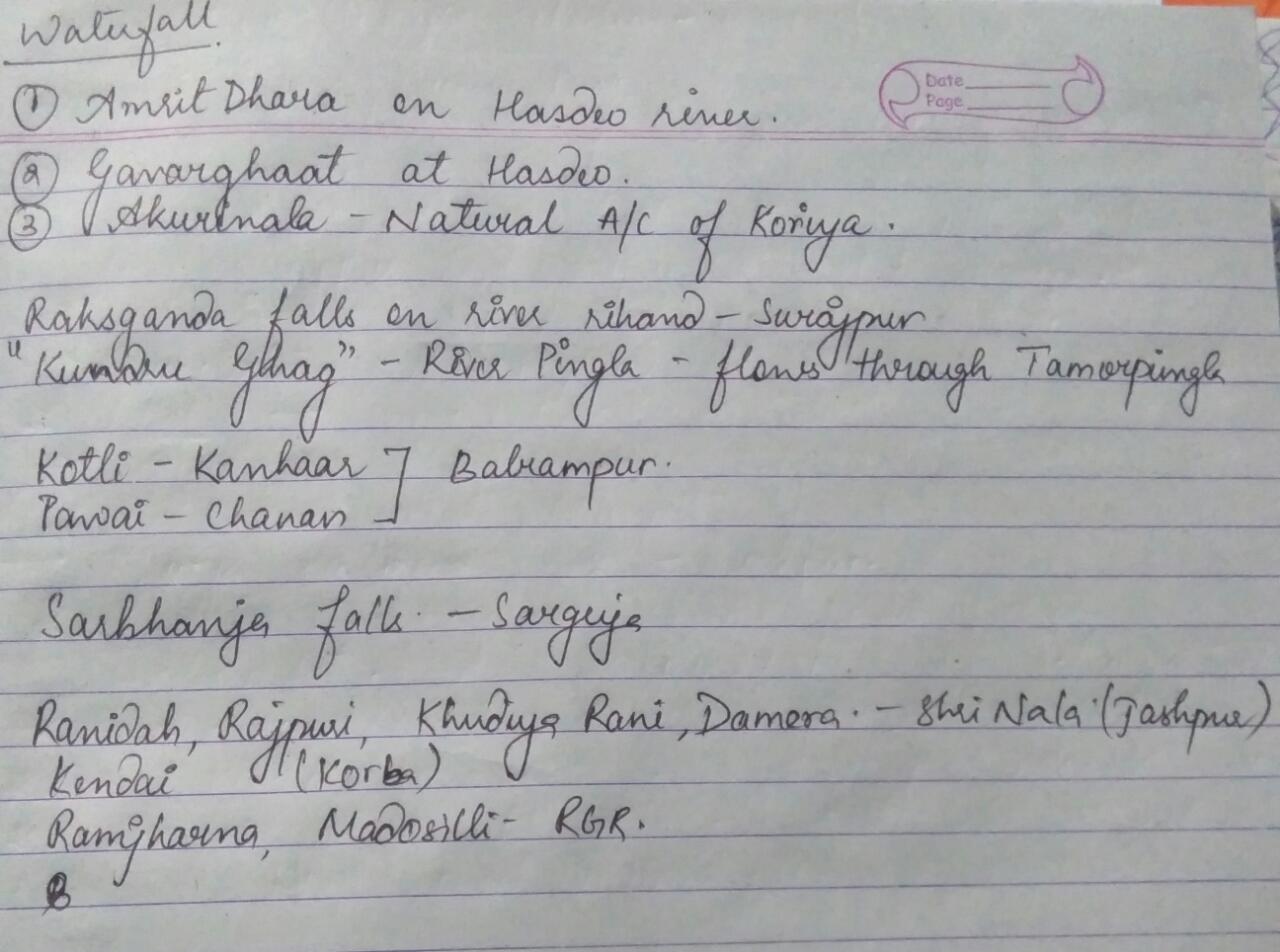 Waterfall
① Amrit Dhara on Hasdeo river.
Date
Page
② Gavarghaat at Hasdeo.
③ Akurinala - Natural A/C of Koriya.
Raksganda falls on river rihand - Surajpur
"Kundru Ghag" - River Pingla - flows through Tamorpingla
Kotli - Kanhaar ] Balrampur.
Pawai - Chanan
Sarbhanja falls. - Sarguja
Ranidah, Rajpuri, Khudiya Rani, Damera. - Shri Nala (Jashpur)
Kendai (Korba)
Ramjharna, Madosilli - RGR.
B